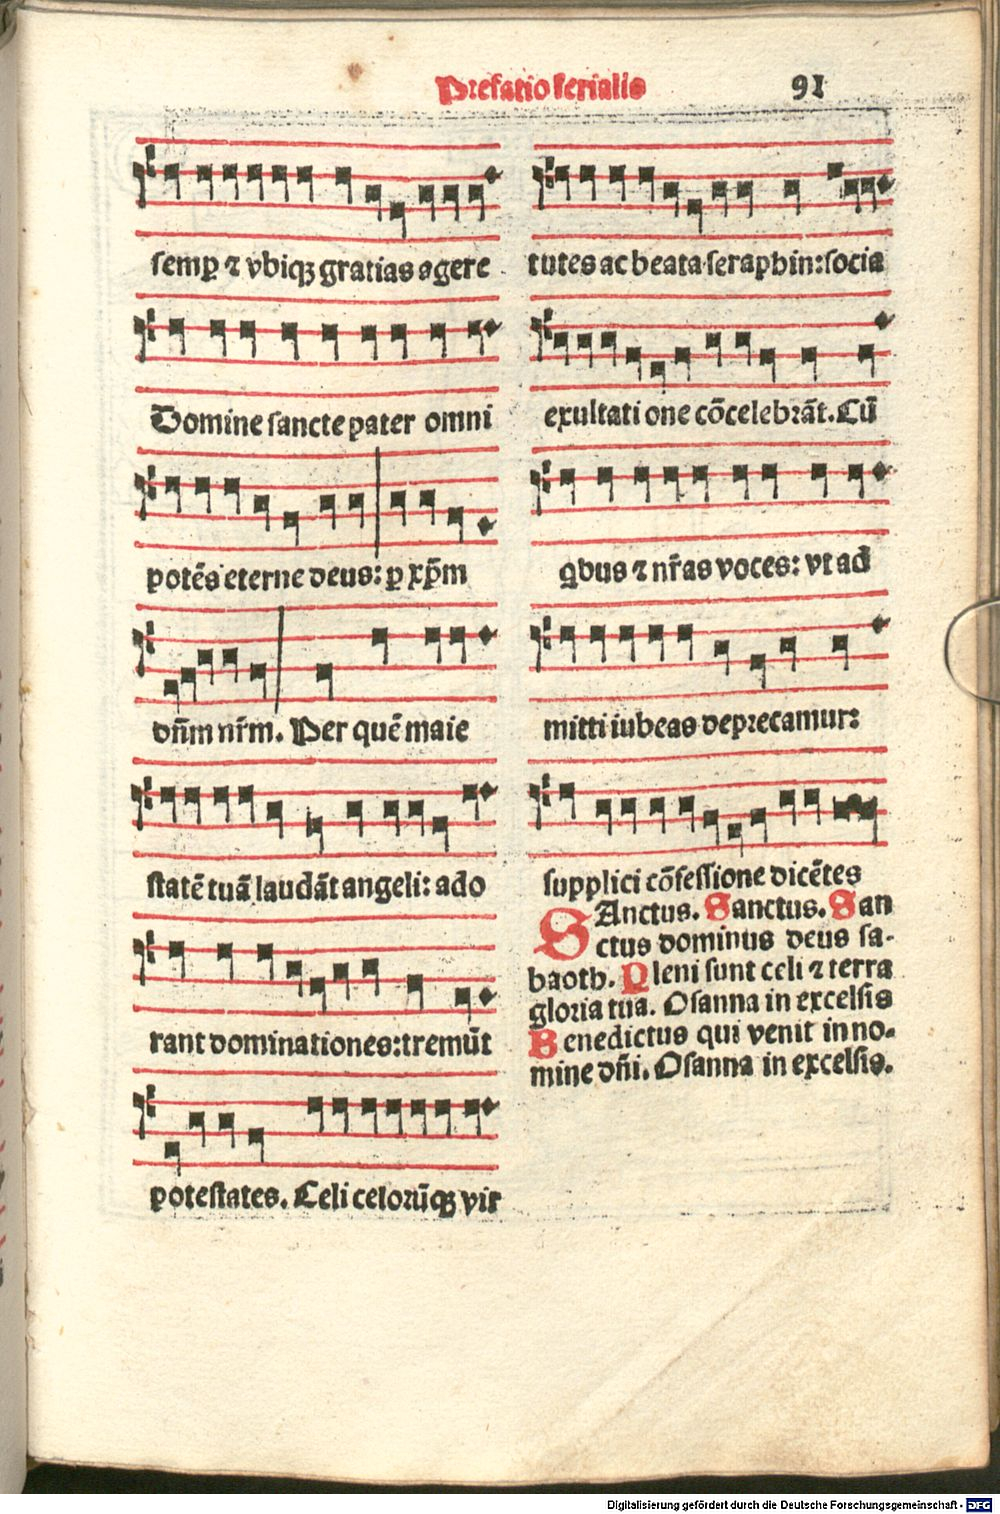 Prefatio ferialis
91
semꝑ ⁊ vbiqꝫ gratias agere
Domine sancte pater omni
potēs eterne deus: ꝑ xp̄m
dn̄m nr̄m. Per quē maie
statē tuā laudāt angeli: ado
rant dominationes: tremūt
potestates. Celi celorūqꝫ vir
tutes ac beata seraphin: socia
exultati one cōcelebrāt. Cū
qbus ⁊ nr̄as voces: vt ad
mitti iubeas deprecamur:
supplici cōfessione dicētes
SAnctus. Sanctus. San
ctus dominus deus sa-
baoth. Pleni sunt celi ⁊ terra
gloria tua. Osanna in excelsis
Benedictus qui venit in no-
mine dn̄i. Osanna in excelsis.
Digitalisierung gefördert durch die Deutsche Forschungsgemeinschaft - DFG